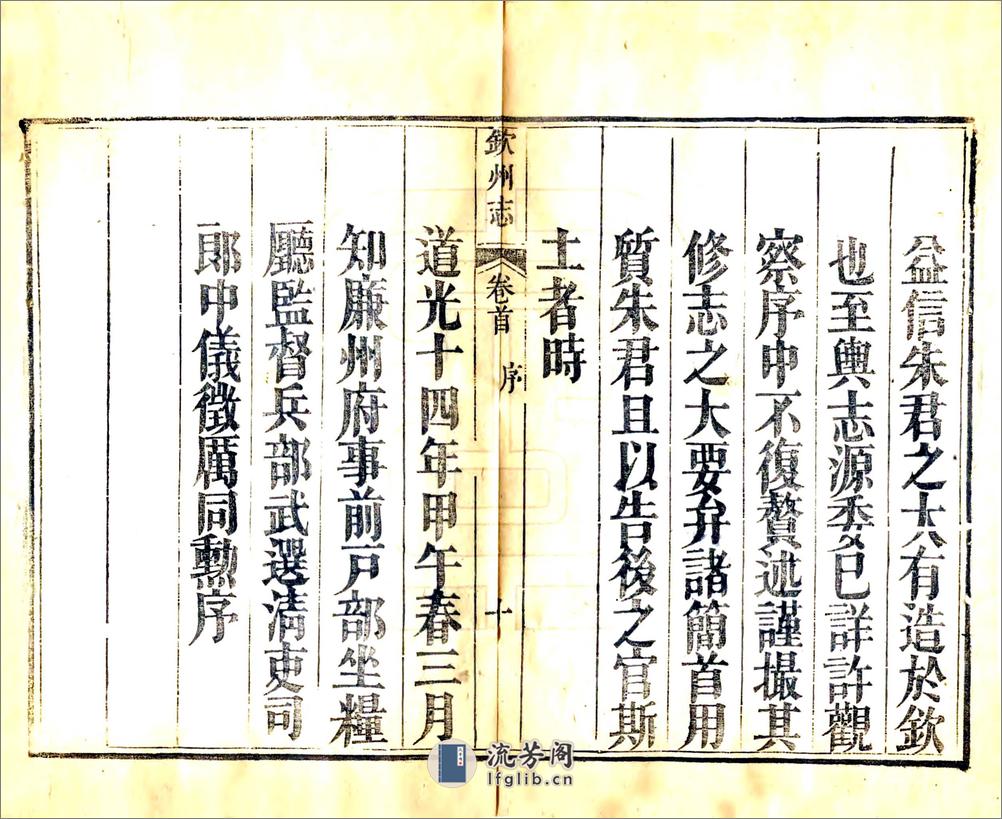 益信朱君之大有造於欽
也至輿志源委已詳許觀
察序中不復贅述謹撮其
修志之大要弁諸簡首用
質朱君且以告後之官斯
土者時
欽州志
卷首
序
十
道光十四年甲午春三月
知廉州府事前戸部坐糧
廳監督兵部武選清吏司
郎中儀徵厲同勳序
流芳阁
lfglib.cn